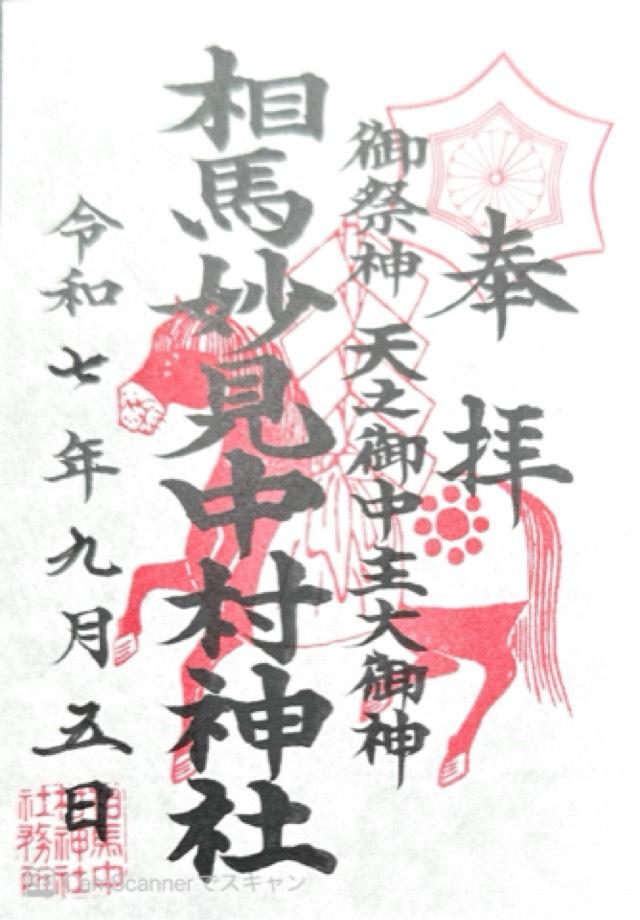 奉拝
御祭神 天之御中主大御神
相馬妙見中村神社
令和七年九月五日
相馬中
村神社
社務所
CamScannerでスキャン